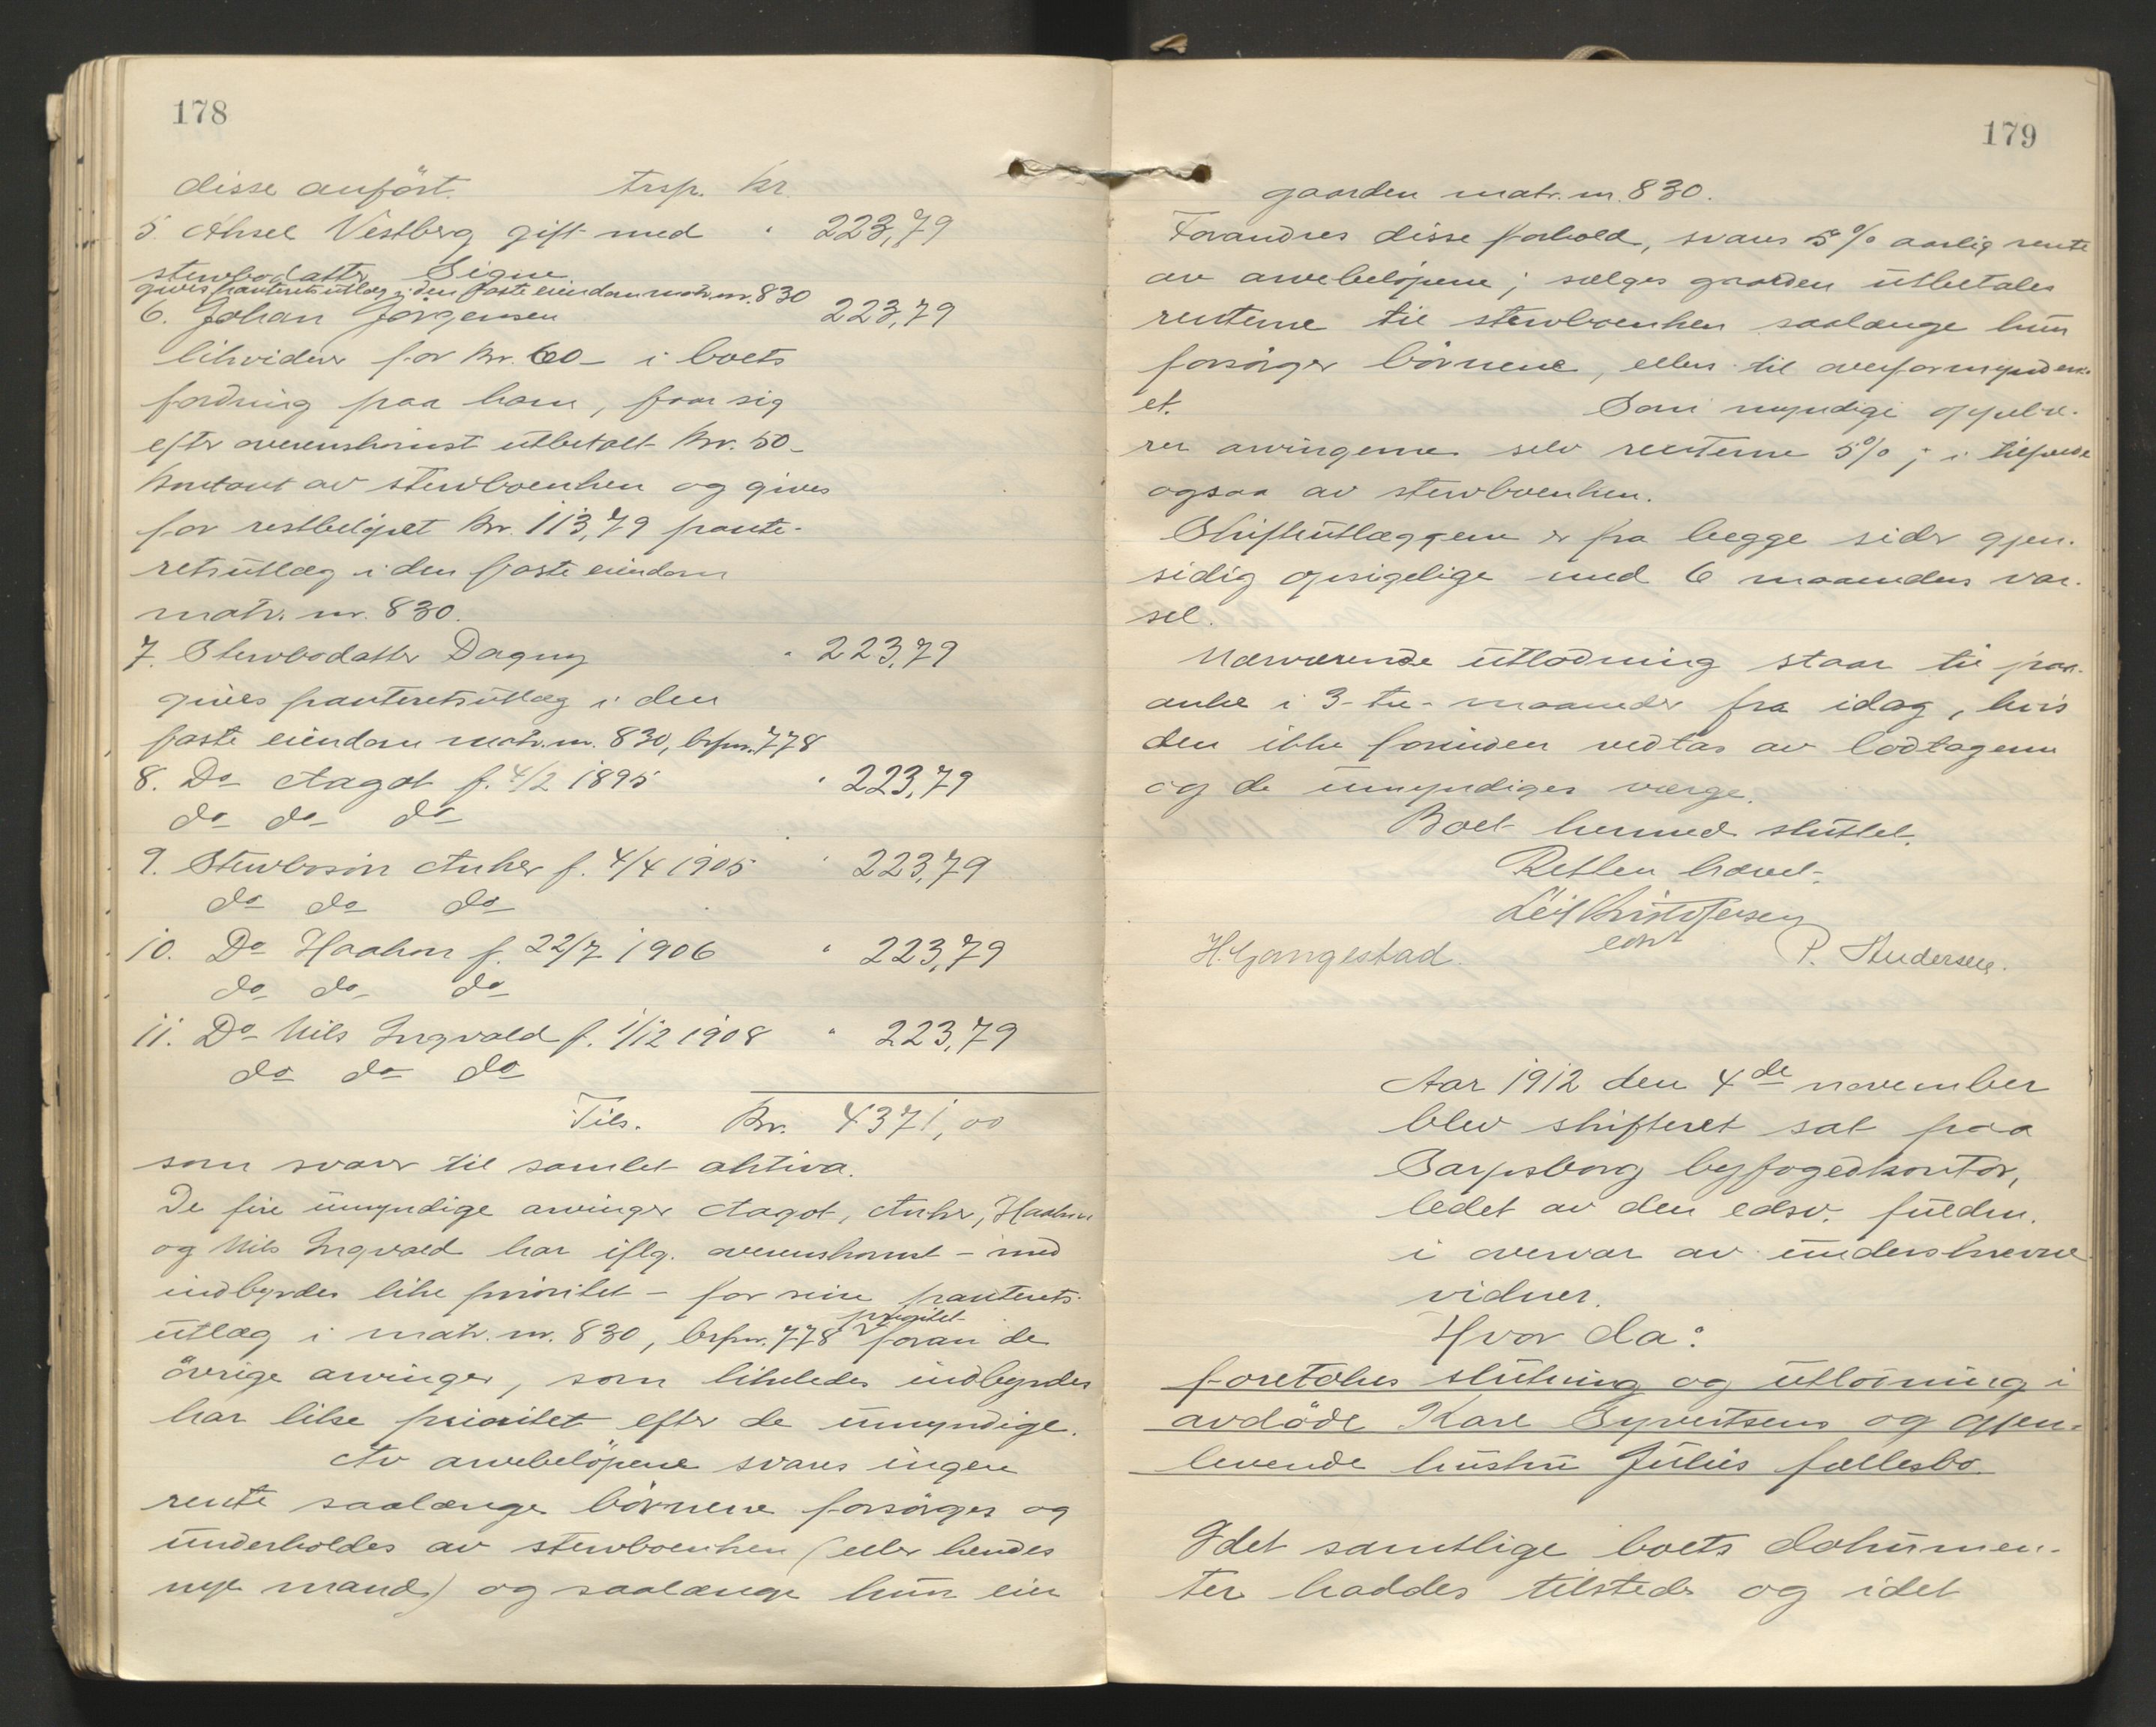 178
disse anført. trsp. kr.
5. Aksel Vestberg gift med " 223,79
stervbodatter Signe
gives panteretsutlæg i den faste eiendom matr. nr. 830
6. Johan Jörgensen 223,79
likviderer for kr. 60- i boets
fordring paa ham, faar sig
efter overenskomst utbetalt kr. 50-
kontant av stervboenken og gives
for restbelöpet kr. 113,79 pante-
retsutlæg i den faste eiendom
matr. nr. 830.
7. Stervbodatter Dagny " 223,79
gives panteretsutlæg i den
faste eiendom matr. nr. 830, brfnr. 778
8. Do Aagot f. 4/2 1895 " 223,79
do do do
9. Stervbosön Anker f. 4/4 1905 " 223,79
do do do
10. Do Haakon f. 22/7 1906 " 223,79
do do do
11. Do Nils Ingvald f. 1/12 1908 " 223,79
do do do
Tils. Kr. 4371,00
som svarer til samlet aktiva.
De fire umyndige arvinger Aagot, Anker, Haakon
og Nils Ingvald har iflg. overenskomst - med
indbyrdes like prioritet - for sine panterets-
prioritet
utlæg i matr. nr. 830, brfnr. 778 foran de
övrige arvinger, som likeledes indbyrdes
har like prioritet efter de umyndige.
Av arvebelöpene svares ingen
rente saalænge börnene forsörges og
underholdes av stervboenken (eller hendes
nye mand) og saalænge hun eier
179
gaarden matr. nr. 830.
Forandres disse forhold, svares 5% aarlig rente
av arvebelöpene; sælges gaarden utbetales
renterne til stervboenken saalænge hun
forsörger börnene, ellers til overformynderi-
et. Som myndige oppebæ-
rer arvingerne selv renterne 5%; i tilfælde
ogsaa av stervboenken.
Skifteutlæggene er fra begge sider gjen-
sidig opsigelige med 6 maaneders var-
sel.
Nærværende utlodning staar til paa-
anke i 3-tre- maaneder fra idag, hvis
den ikke forinden vedtas av lodtagerne
og de umyndiges værge.
Boet hermed sluttet.
Retten hævet.
Leif Kristofersen
edsv
H. Gangestad. P. Andersen.
Aar 1912 den 4de november
blev skifteret sat paa
Sarpsborg byfogedkontor,
ledet av den edsv. fuldm.
i overvær av underskrevne
vidner.
Hvor da:
foretokes slutning og utlodning i
avdöde Karl Syvertsens og gjen-
levende hustru Julies fællesbo.
Idet samtlige boets dokumen-
ter haddes tilstede og idet